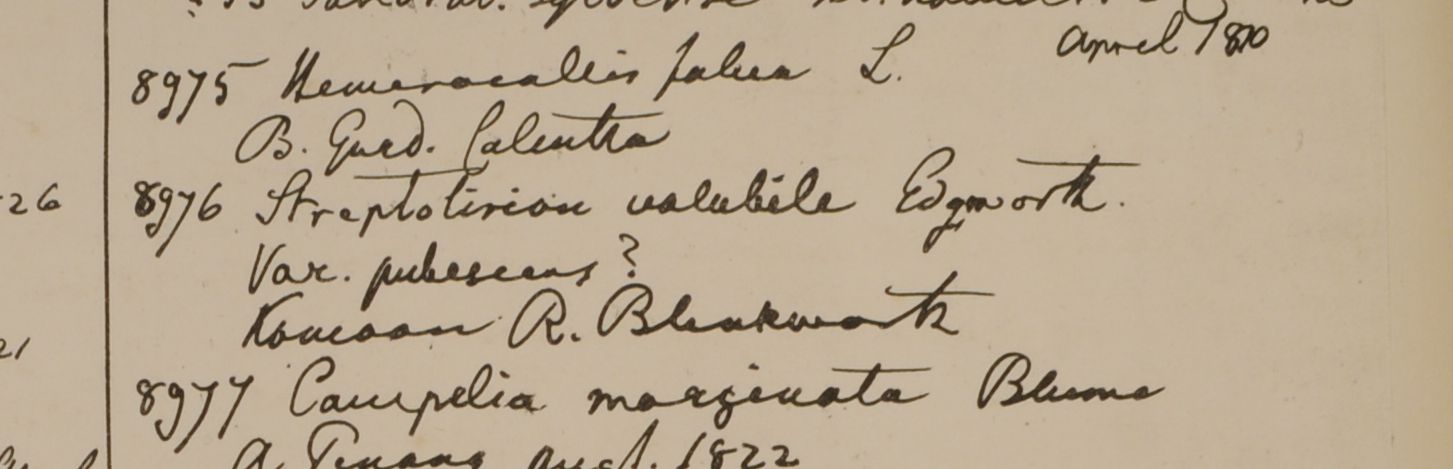 April 1810
8975 Hemerocallis fulva L.
B. Gard. Calcutta
26 8976 Streptolirion volubile Edgworth.
Var. pubescens ?
Kamoon R. Blinkworth
21
8977 Campelia marginata Blume
A. Penang Augt. 1822